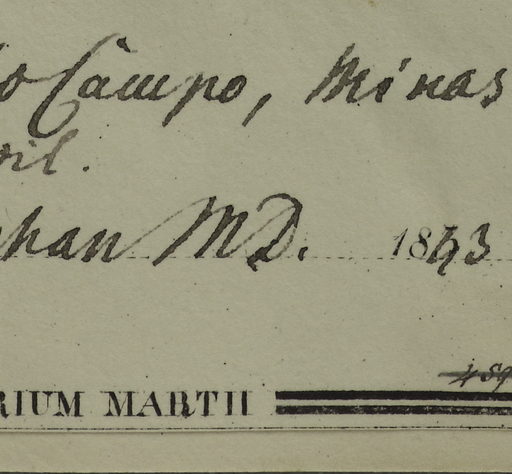 o Câmpo, Minas
sil.
phan MD. 1843
RIUM MARTII